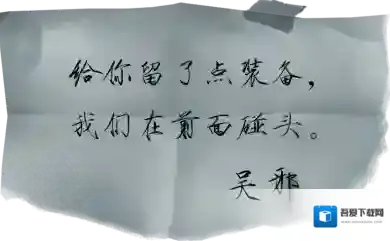 给你留了点装备，
我们在前面碰头。
吴邪
吾爱下载网